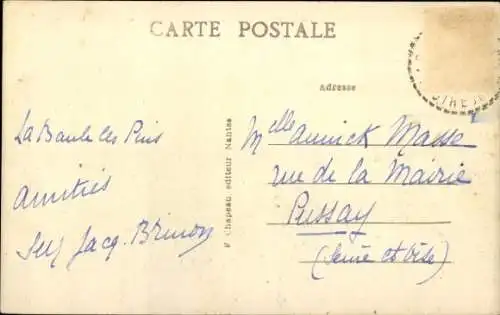 CARTE POSTALE
Adresse
La Baule les Pins
amitiés
Jacq. Brinon
F. Chapeau, éditeur Nantes
Melle Annick Masse
rue de la Mairie
Pussay
(Seine et Oise)